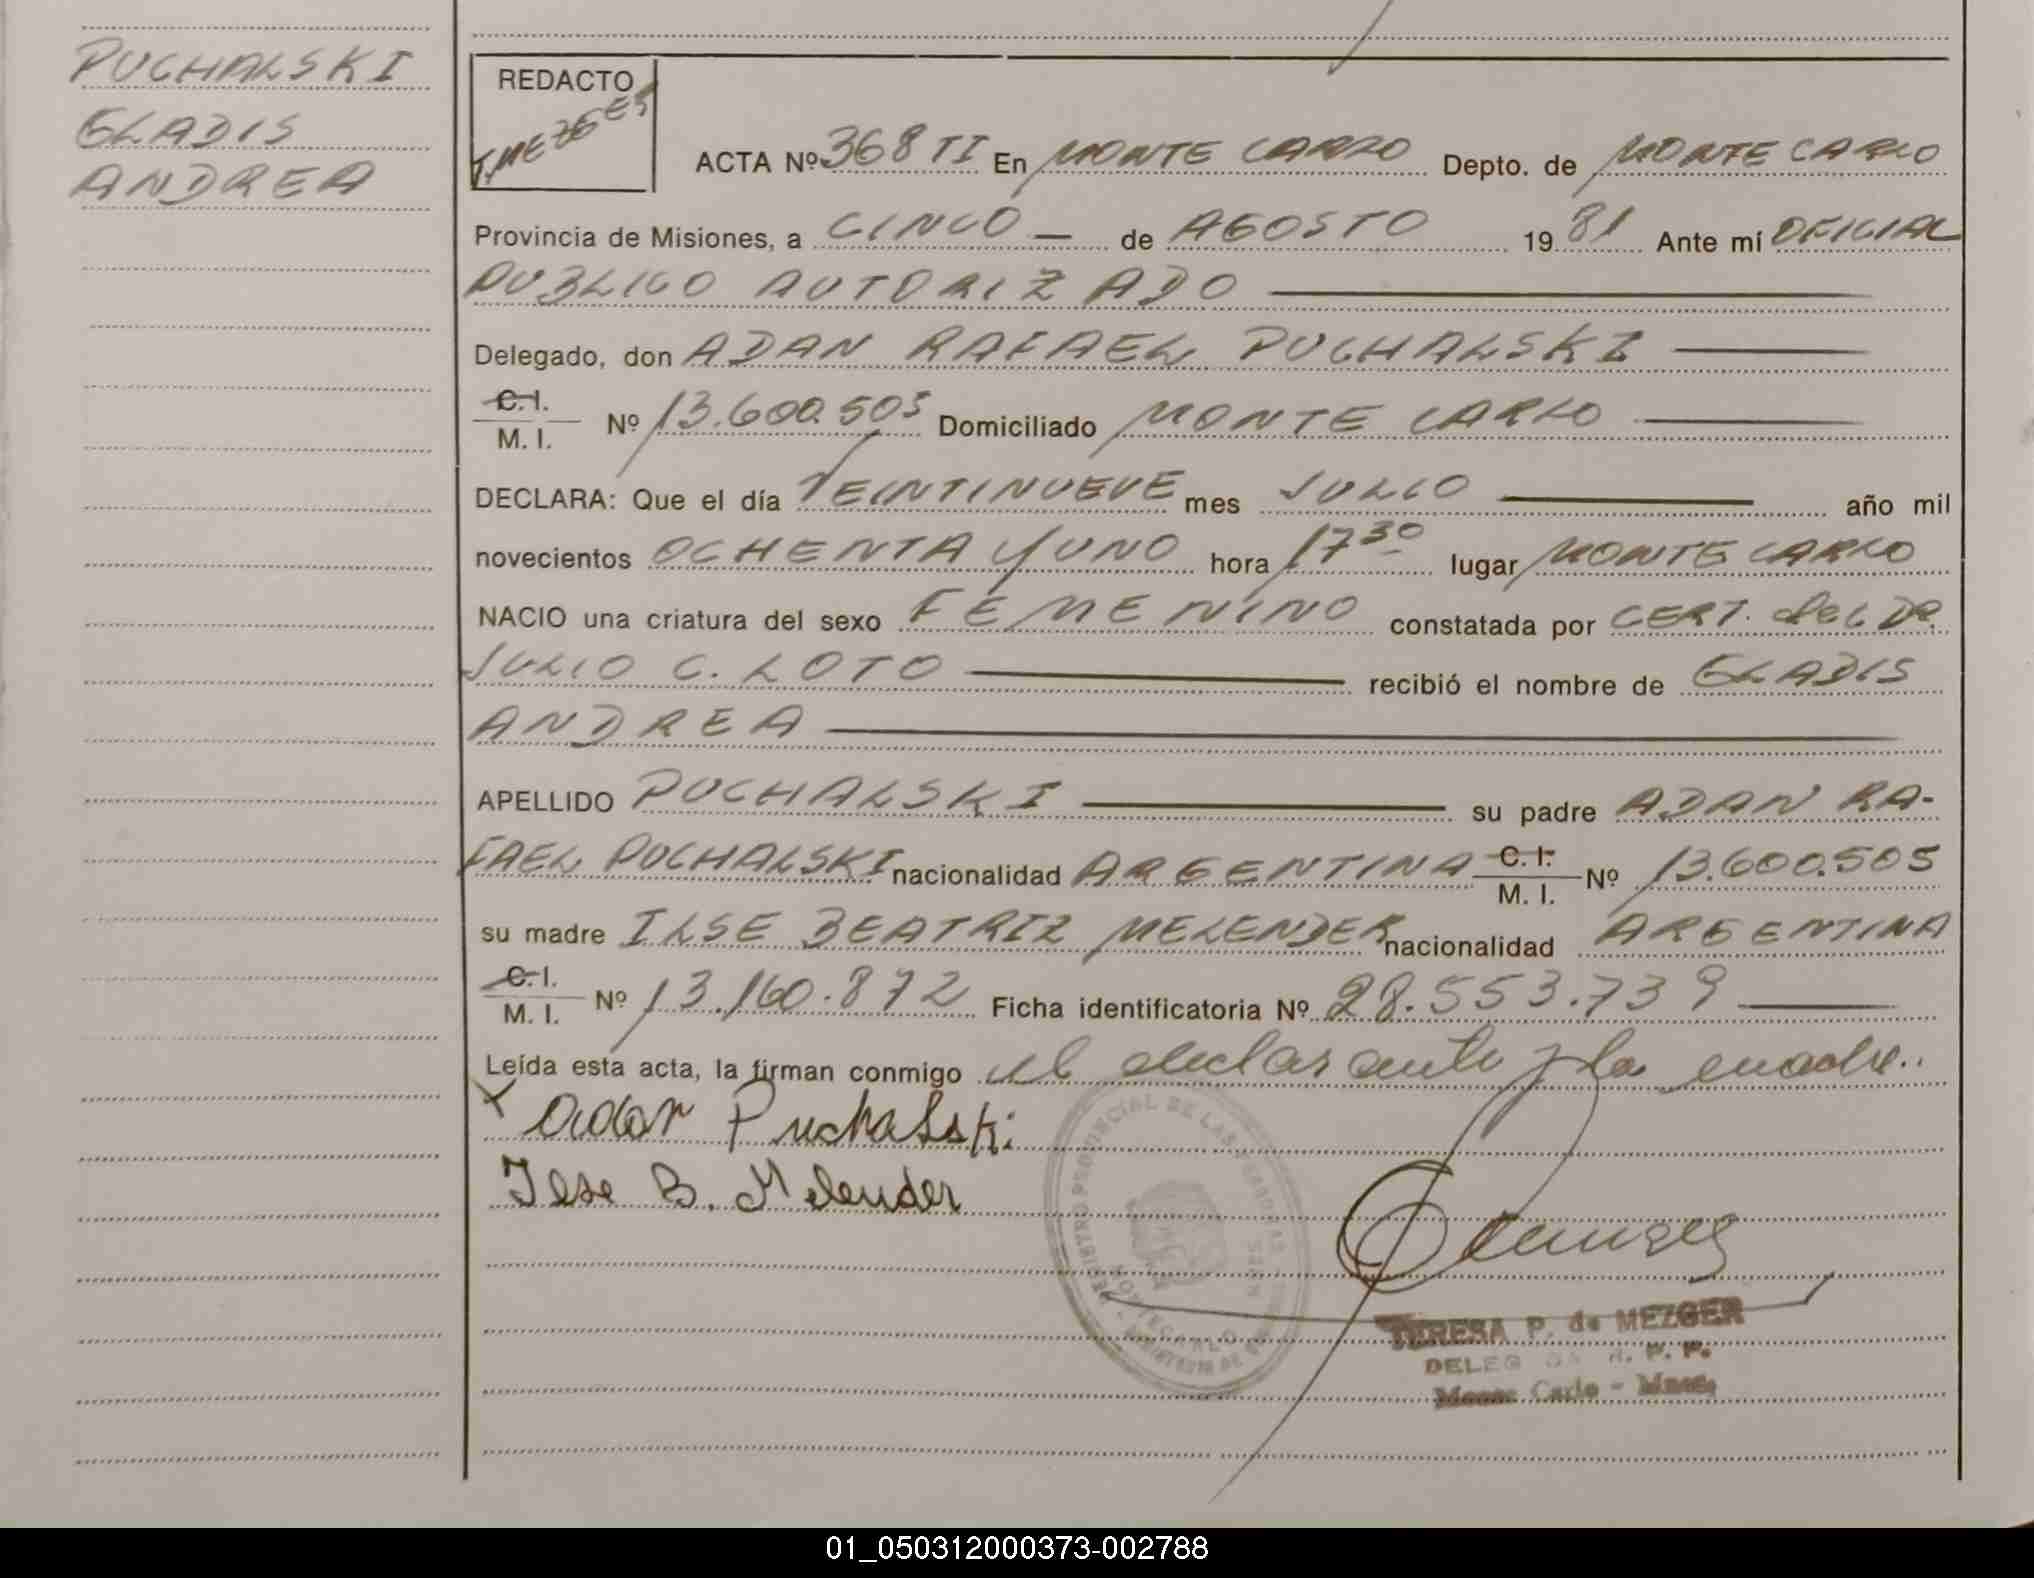 PUCHALSKI
GLADIS
ANDREA
REDACTO
T. MEZGER
ACTA Nº 368 TI En MONTE CARLO Depto. de MONTE CARLO
Provincia de Misiones, a CINCO — de AGOSTO 19 81 Ante mí OFICIAL
PUBLICO AUTORIZADO
Delegado, don ADAN RAFAEL PUCHALSKI
C.I.
M. I. Nº 13.600.505 Domiciliado MONTE CARLO
DECLARA: Que el día VEINTINUEVE mes JULIO año mil
novecientos OCHENTA Y UNO hora 17 30 lugar MONTE CARLO
NACIO una criatura del sexo FEMENINO constatada por CERT. del DR.
JULIO C. LOTO recibió el nombre de GLADIS
ANDREA
APELLIDO PUCHALSKI su padre ADAN RA-
FAEL PUCHALSKI nacionalidad ARGENTINA C. I. Nº 13.600.505
M. I.
su madre ILSE BEATRIZ MELENDER nacionalidad ARGENTINA
C. I.
M. I. Nº 13.160.872 Ficha identificatoria Nº 28.553.739
Leída esta acta, la firman conmigo el declarante y la madre..
x Adan Puchalski
Ilse B. Melender
REGISTRO PROVINCIAL DE LAS PERSONAS
MONTECARLO
TERESA P. de MEZGER
DELEG R. P. P.
Monte Carlo - Mnes.
01_050312000373-002788